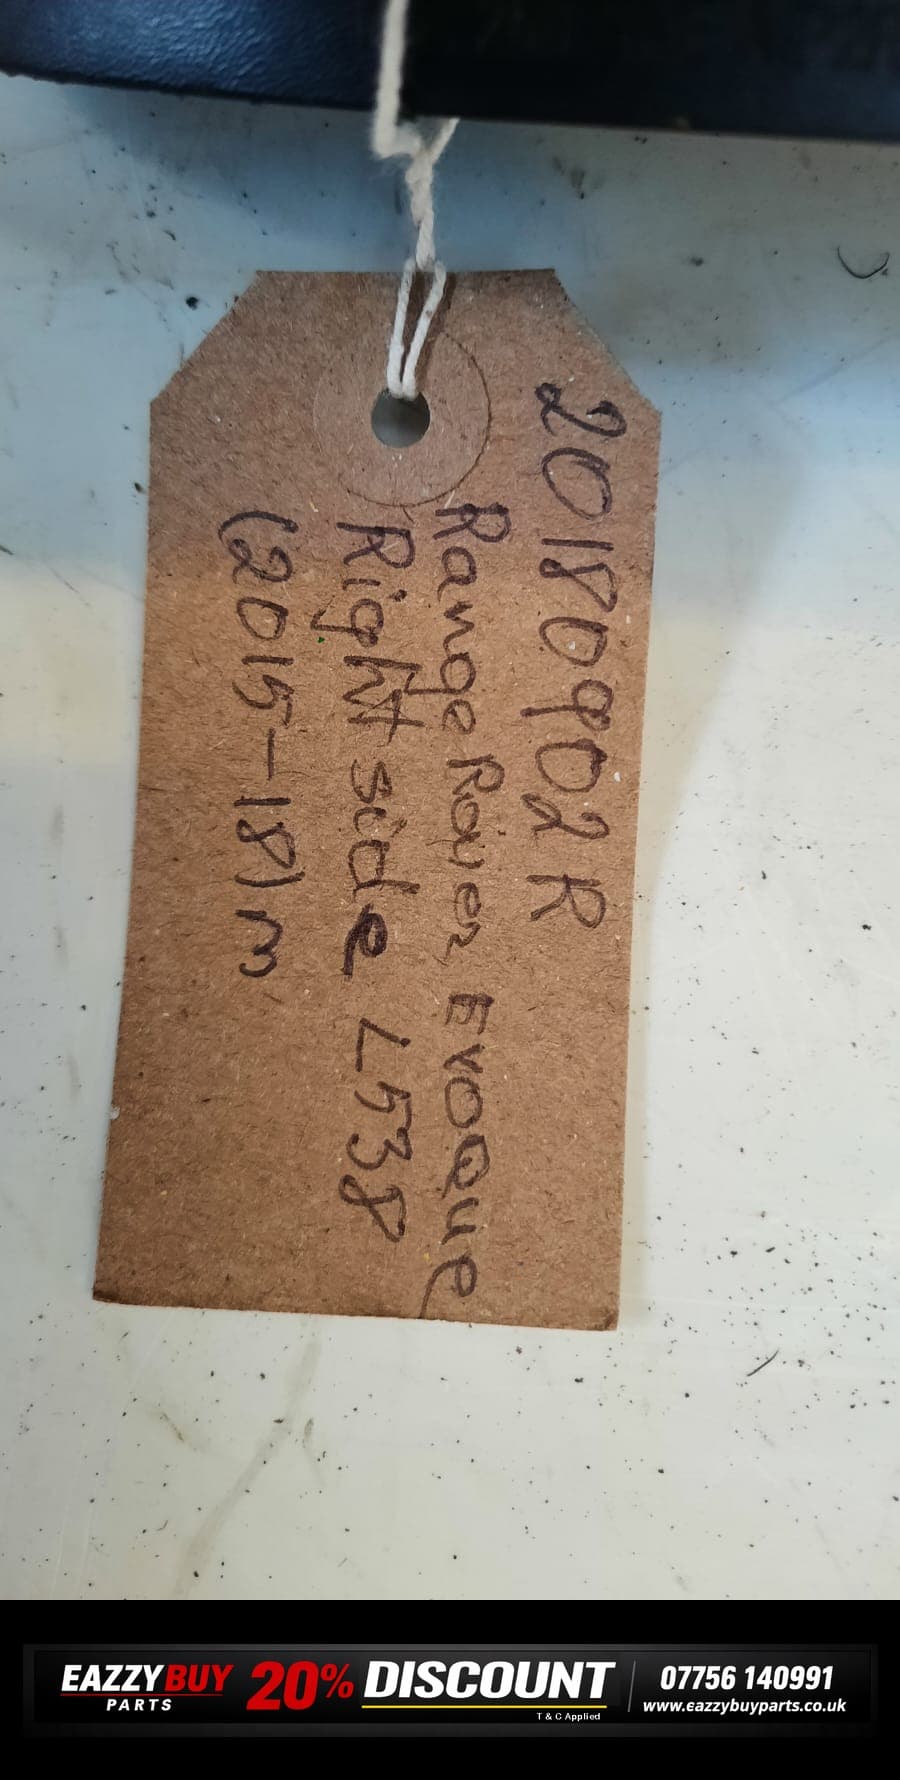 20180902R
Range Rover Evoque
Right side L538
(2015-18) m
EAZZYBUY
PARTS
20% DISCOUNT
T & C Applied
07756 140991
www.eazzybuyparts.co.uk